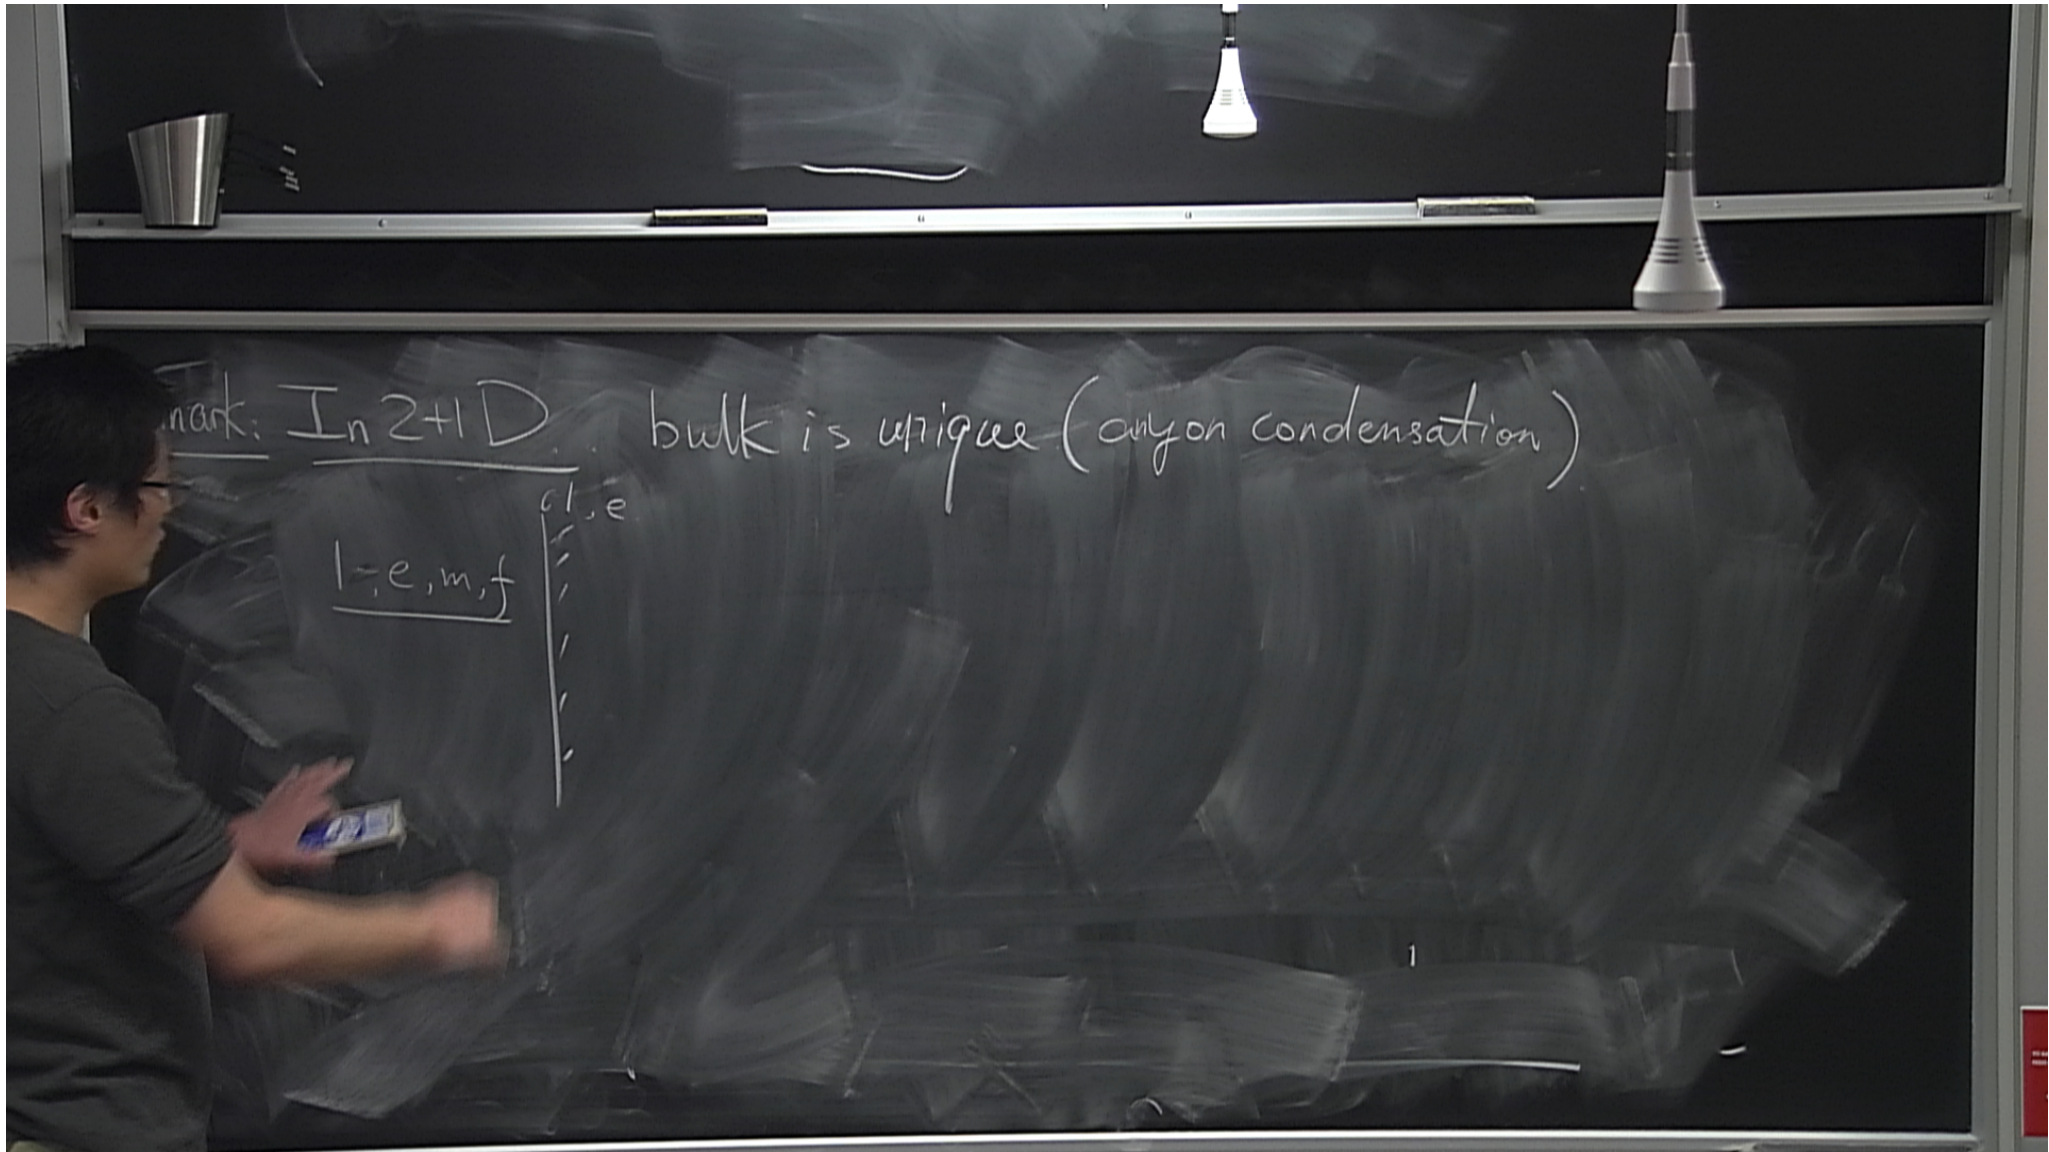 mark: In 2+1 D .. bulk is unique (anyon condensation)
1, e
1, e, m, f